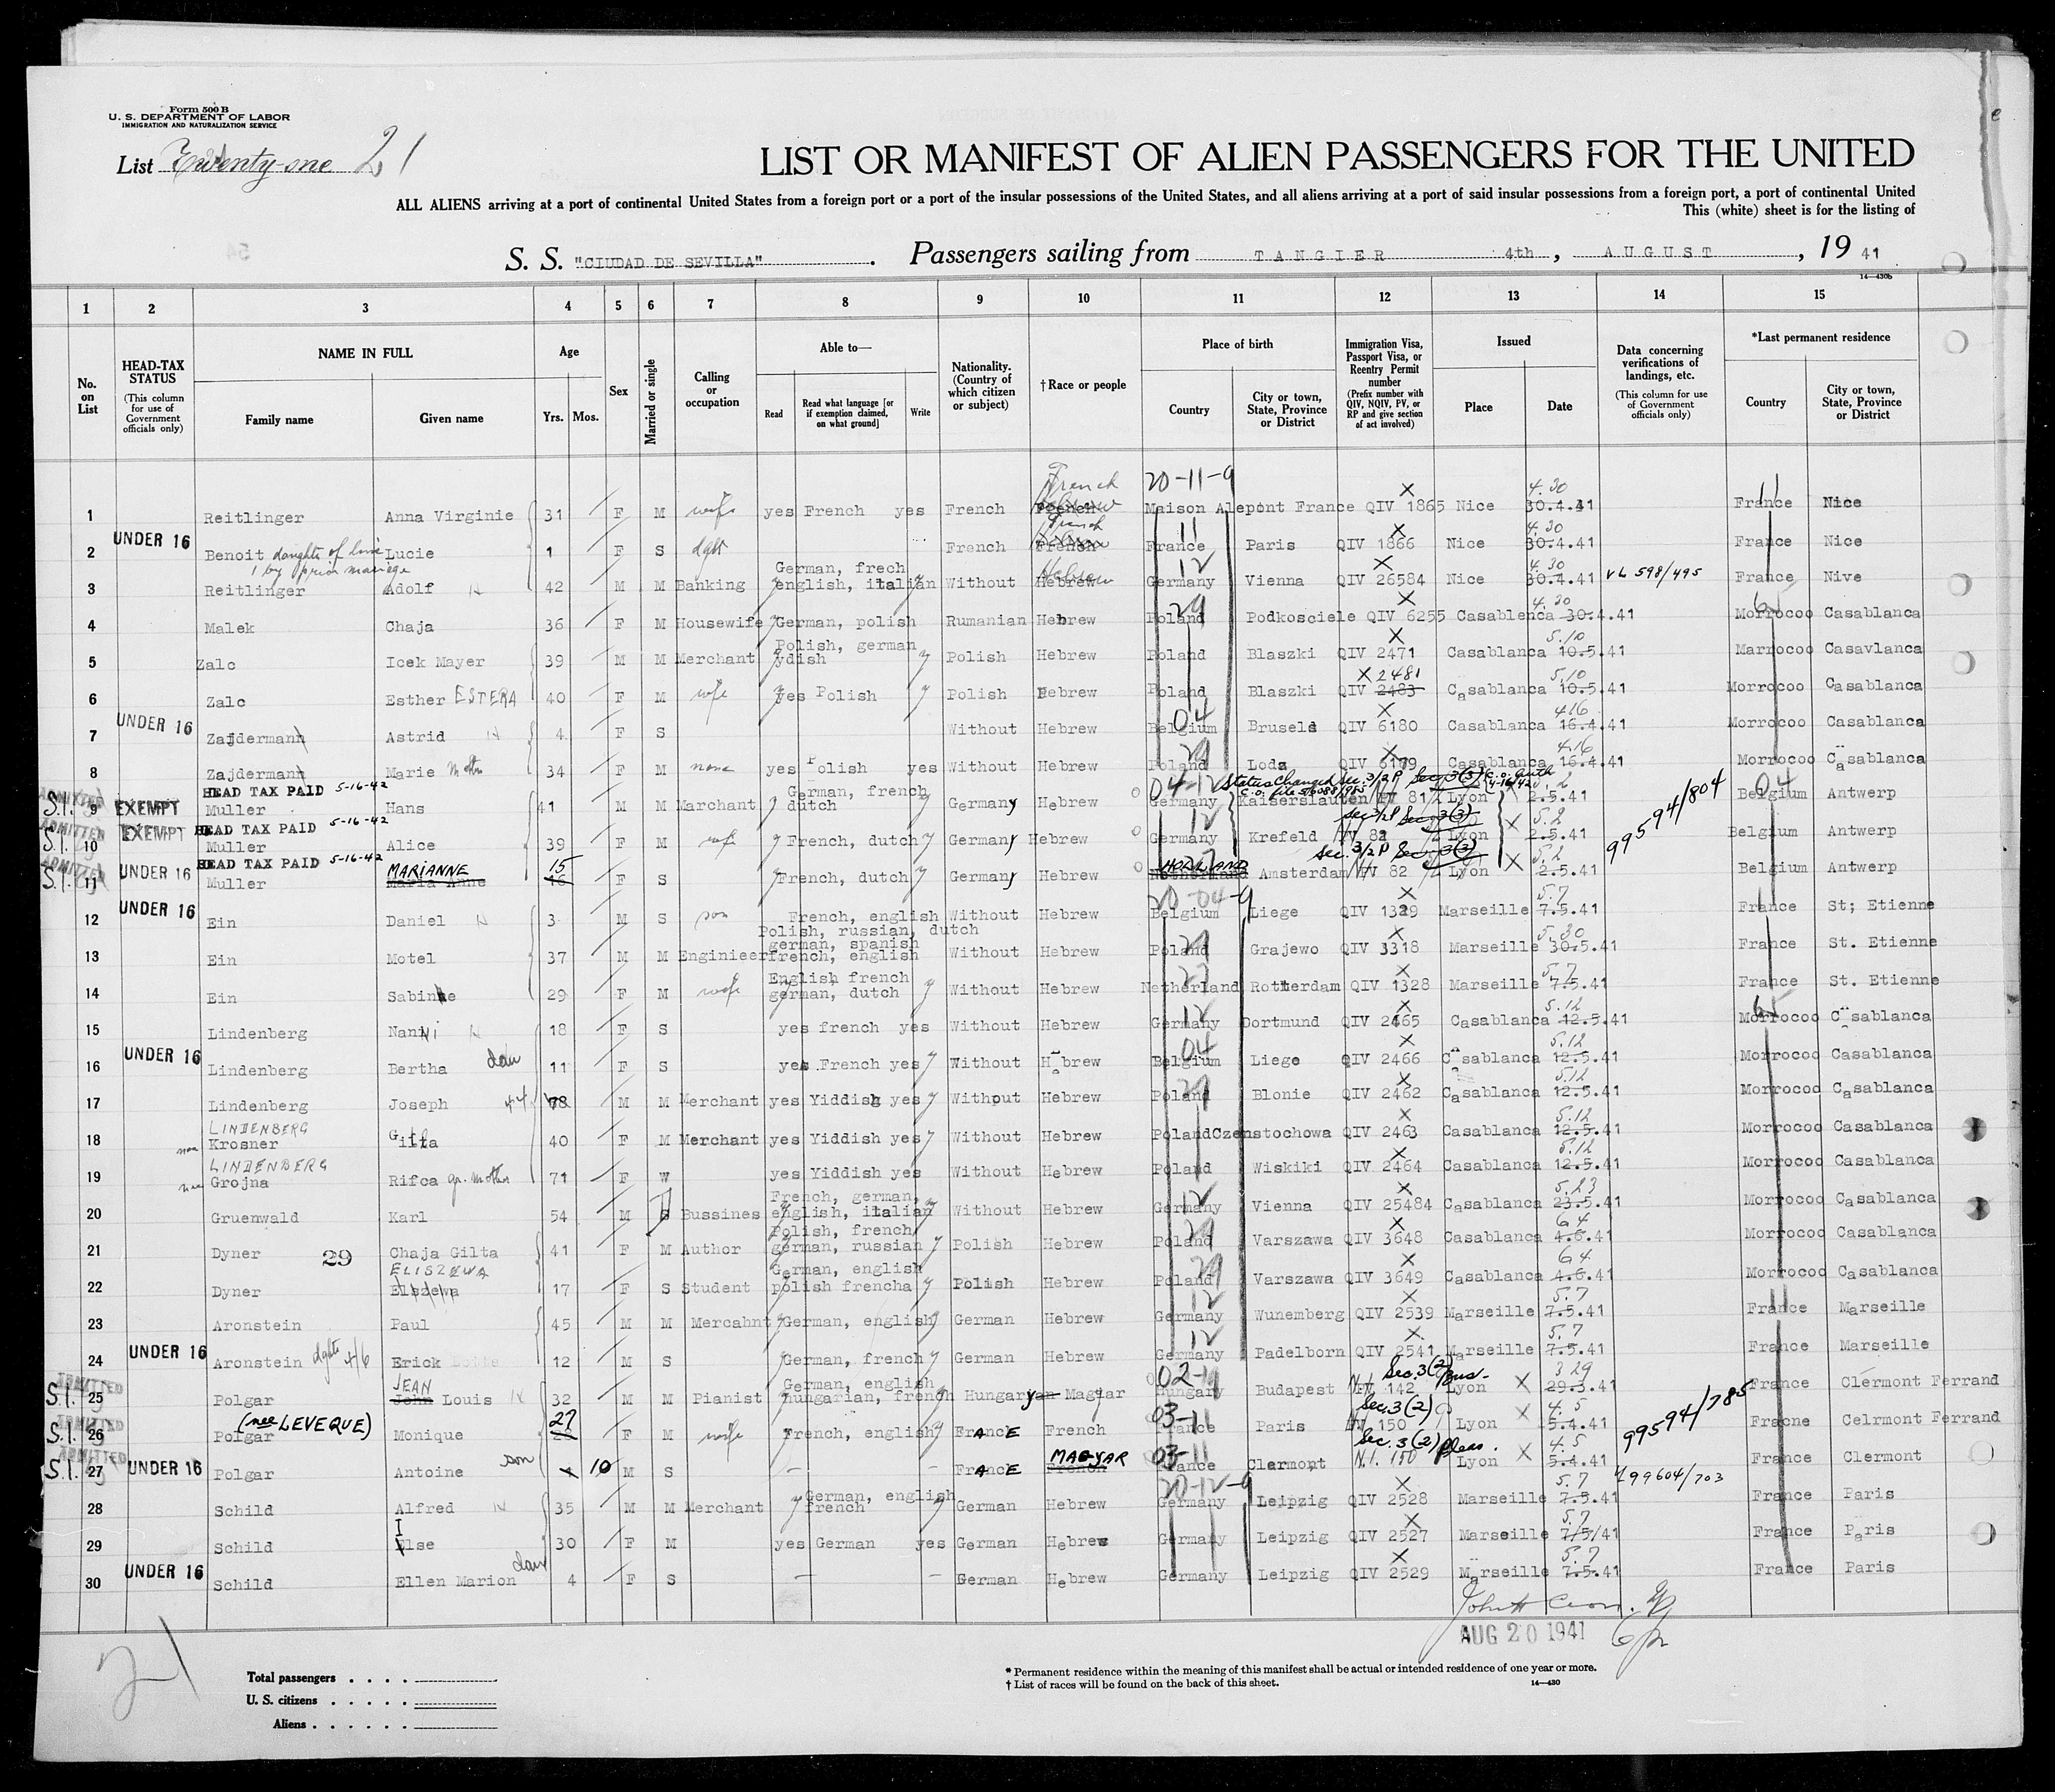 Form 500 B
U. S. DEPARTMENT OF LABOR
IMMIGRATION AND NATURALIZATION SERVICE
List Twenty-one 21
LIST OR MANIFEST OF ALIEN PASSENGERS FOR THE UNITED
ALL ALIENS arriving at a port of continental United States from a foreign port or a port of the insular possessions of the United States, and all aliens arriving at a port of said insular possessions from a foreign port, a port of continental United
This (white) sheet is for the listing of
S. S. "CIUDAD DE SEVILLA". Passengers sailing from TANGIER 4th, AUGUST, 19 41
14—430b
1 2 3 4 5 6 7 8 9 10 11 12 13 14 15
No. on List
HEAD-TAX STATUS (This column for use of Government officials only)
NAME IN FULL Family name Given name
Age Yrs. Mos.
Sex
Married or single
Calling or occupation
Able to— Read Read what language [or if exemption claimed, on what ground] Write
Nationality. (Country of which citizen or subject)
† Race or people
Place of birth Country City or town, State, Province or District
Immigration Visa, Passport Visa, or Reentry Permit number (Prefix number with QIV, NQIV, PV, or RP and give section of act involved)
Issued Place Date
Data concerning verifications of landings, etc. (This column for use of Government officials only)
*Last permanent residence Country City or town, State, Province or District
French 20-11-9 X 4.30
1 Reitlinger Anna Virginie 31 F M wife yes French yes French French Maison Alepont France QIV 1865 Nice 30.4.41 France Nice
UNDER 16 French 11 X 4.30
2 Benoit daughter of line 1 by prior mariage Lucie 1 F S dght French French France Paris QIV 1866 Nice 30.4.41 France Nice
German, frech Hebrew 12 X 4.30
3 Reitlinger Adolf 42 M M Banking y english, italian Without Hebrew Germany Vienna QIV 26584 Nice 30.4.41 VL 598/495 France Nive
29 X 4.30 65
4 Malek Chaja 36 F M Housewife y German, polish Rumanian Hebrew Poland Podkosciele QIV 6255 Casablenca 30.4.41 Morrocoo Casablanca
Polish, german X 5.10
5 Zalc Icek Mayer 39 M M Merchant ydish y Polish Hebrew Poland Blaszki QIV 2471 Casablanca 10.5.41 Marrocoo Casavlanca
X 2481 5.10
6 Zalc Esther ESTERA 40 F M wife yes Polish y Polish Hebrew Poland Blaszki QIV 2483 Casablanca 10.5.41 Morrocoo Casablanca
UNDER 16 04 X 4.16
7 Zajdermann Astrid 4 F S Without Hebrew Belgium Brusels QIV 6180 Casablanca 16.4.41 Morrocoo Casablanca
29 X 4.16
8 Zajdermann Marie Mother 34 F M none yes Polish yes Without Hebrew Poland Lodz QIV 6179 Casablanca 16.4.41 Morrocoo Casablanca
ADMITTED HEAD TAX PAID 5-16-42 German, french 04-12 Status changed Sec. 3/2P Sec. 3(3) C.O. Auth 4-16/42 5.2 04
S.I. 9 EXEMPT Muller Hans 41 M M Marchant y dutch y Germany Hebrew Germany Kaiserslauten PV 81 Lyon 2.5.41 Belgium Antwerp
ADMITTED HEAD TAX PAID 5-16-42 12 Sec. 3/2P Sec. 3(3) X 5.2 99594/804
S.I. 10 EXEMPT Muller Alice 39 F M wife y French, dutch y Germany Hebrew Germany Krefeld PV 82 Lyon 2.5.41 Belgium Antwerp
ADMITTED HEAD TAX PAID 5-16-42 MARIANNE 15 HOLLAND Sec. 3/2P Sec. 3(3) X 5.2
S.I. 11 UNDER 16 Muller Maria Anne 16 F S y French, dutch y Germany Hebrew Amsterdam PV 82 Lyon 2.5.41 Belgium Antwerp
UNDER 16 20-04-9 X 5.7
12 Ein Daniel 3 M S son French, english Without Hebrew Belgium Liege QIV 1329 Marseille 7.5.41 France St; Etienne
Polish, russian, dutch
german, spanish 29 X 5.30
13 Ein Motel 37 M M Enginieer french, english Without Hebrew Poland Grajewo QIV 3318 Marseille 30.5.41 France St. Etienne
English french 27 X 5.7
14 Ein Sabinne 29 F M wife german, dutch y Without Hebrew Netherland Rotterdam QIV 1328 Marseille 7.5.41 France St. Etienne
12 X 5.12 65
15 Lindenberg Nanni 18 F S yes french yes Without Hebrew Germany Dortmund QIV 2465 Casablanca 12.5.41 Morrocoo Casablanca
UNDER 16 04 X 5.12
16 Lindenberg Bertha dau 11 F S yes French yes y Without Hebrew Belgium Liege QIV 2466 Casablanca 12.5.41 Morrocoo Casablanca
29 X 5.12
17 Lindenberg Joseph 44 M M Merchant yes Yiddish yes y Without Hebrew Poland Blonie QIV 2462 Casablanca 12.5.41 Morrocoo Casablanca
LINDENBERG X 5.12
18 nee Krosner Gitla 40 F M Merchant yes Yiddish yes y Without Hebrew Poland Czenstochowa QIV 2463 Casablanca 12.5.41 Morrocoo Casablanca
LINDENBERG X 5.12
19 nee Grojna Rifca gr. mother 71 F W yes Yiddish yes Without Hebrew Poland Wiskiki QIV 2464 Casablanca 12.5.41 Morrocoo Casablanca
French, german, 12 X 5.23
20 Gruenwald Karl 54 M S Bussines english, italian y Without Hebrew Germany Vienna QIV 25484 Casablanca 23.5.41 Morrocoo Casablanca
Polish, french 29 X 6.4
21 Dyner 29 Chaja Gilta 41 F M Author german, russian y Polish Hebrew Poland Varszawa QIV 3648 Casablanca 4.6.41 Morrocoo Casablanca
ELISZEWA German, english 29 X 6.4
22 Dyner Elszewa 17 F S Student polish frencha y Polish Hebrew Poland Varszawa QIV 3649 Casablanca 4.6.41 Morrocoo Casablanca
12 X 5.7 11
23 Aronstein Paul 45 M M Mercahnt y German, english y German Hebrew Germany Wunemberg QIV 2539 Marseille 7.5.41 France Marseille
UNDER 16 12 X 5.7
24 Aronstein Erick 12 M S y German, french y German Hebrew Germany Padelborn QIV 2541 Marseille 7.5.41 France Marseille
ADMITTED JEAN German, english 02-19 Sec. 3(2) Bus. X 3.29
S.I. 25 Polgar John Louis 32 M M Pianist hungarian, french Hungaryan Magyar Hungary Budapest N.I. 142 Lyon 29.3.41 France Clermont Ferrand
ADMITTED (nee LEVEQUE) 27 03-11 Sec. 3(2) X 4.5 99594/785
S.I. 26 Polgar Monique F M wife French, english y France French France Paris PV 150 Lyon 5.4.41 Fracne Celrmont Ferrand
ADMITTED MAGYAR 03-11 Sec. 3(2) pleas. X 4.5
S.I. 27 UNDER 16 Polgar Antoine son 10 M S — — France French France Clermont N.I. 150 Lyon 5.4.41 99604/703 France Clermont
German, english 20-12-9 X 5.7
28 Schild Alfred 35 M M Merchant y french y German Hebrew Germany Leipzig QIV 2528 Marseille 7.5.41 France Paris
I X 5.7
29 Schild Else 30 F M yes German yes German Hebrew Germany Leipzig QIV 2527 Marseille 7/5/41 France Paris
UNDER 16 X 5.7
30 Schild Ellen Marion dau 4 F S — — German Hebrew Germany Leipzig QIV 2529 Marseille 7.5.41 France Paris
AUG 20 1941
21
Total passengers . . . .
U. S. citizens . . . . .
Aliens . . . . . .
* Permanent residence within the meaning of this manifest shall be actual or intended residence of one year or more.
† List of races will be found on the back of this sheet. 14—430